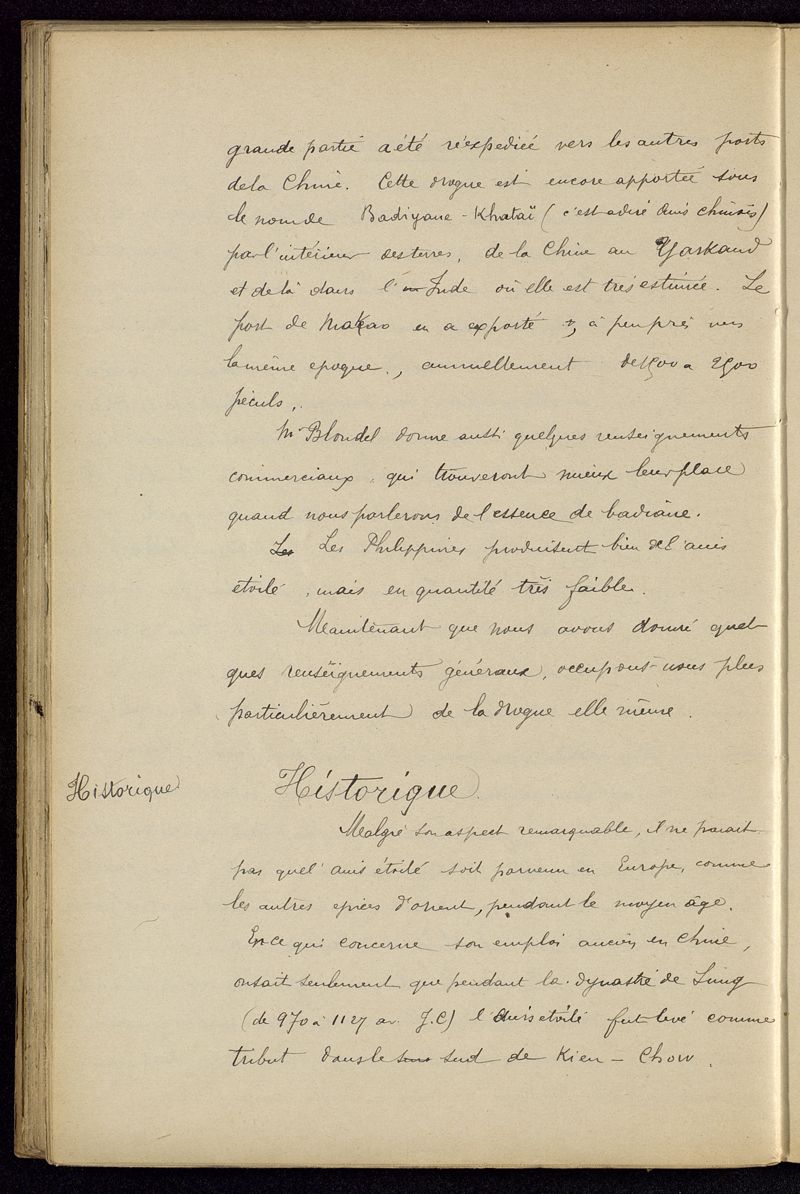 grande partie a été réexpediée vers les autres ports
de la Chine. Cette drogue est encore apportée sous
le nom de Badiyane - Khataï (c'est a dire Anis chinois)
par l'intérieur des terres, de la Chine au Yarkand
et de là dans l'Inde où elle est très estimée. Le
port de Makao en a exporté, à peu près vers
la même epoque, annuellement de 1500 a 2500
péculs.
Mr Blondel donne aussi quelques renseignements
commerciaux, qui trouveront mieux leur place
quand nous parlerons de l'essence de badiane.
Les Les Philippines produisent bien de l'anis
étoilé, mais en quantité très faible.
Maintenant que nous avons donné quel-
ques renseignements généraux, occupons-nous plus
particulièrement de la drogue elle même.
Historique
Historique.
Malgré son aspect remarquable, il ne parait
pas que l'anis étoilé soit parvenu en Europe, comme
les autres epices d'orient, pendant le moyen âge.
En ce qui concerne son emploi ancien en Chine,
on sait seulement que pendant la dynastie de Sung
(de 970 à 1127 av. J.C) l'Anis etoilé fut levé comme
tribut dans le sud de Kien - Chow.